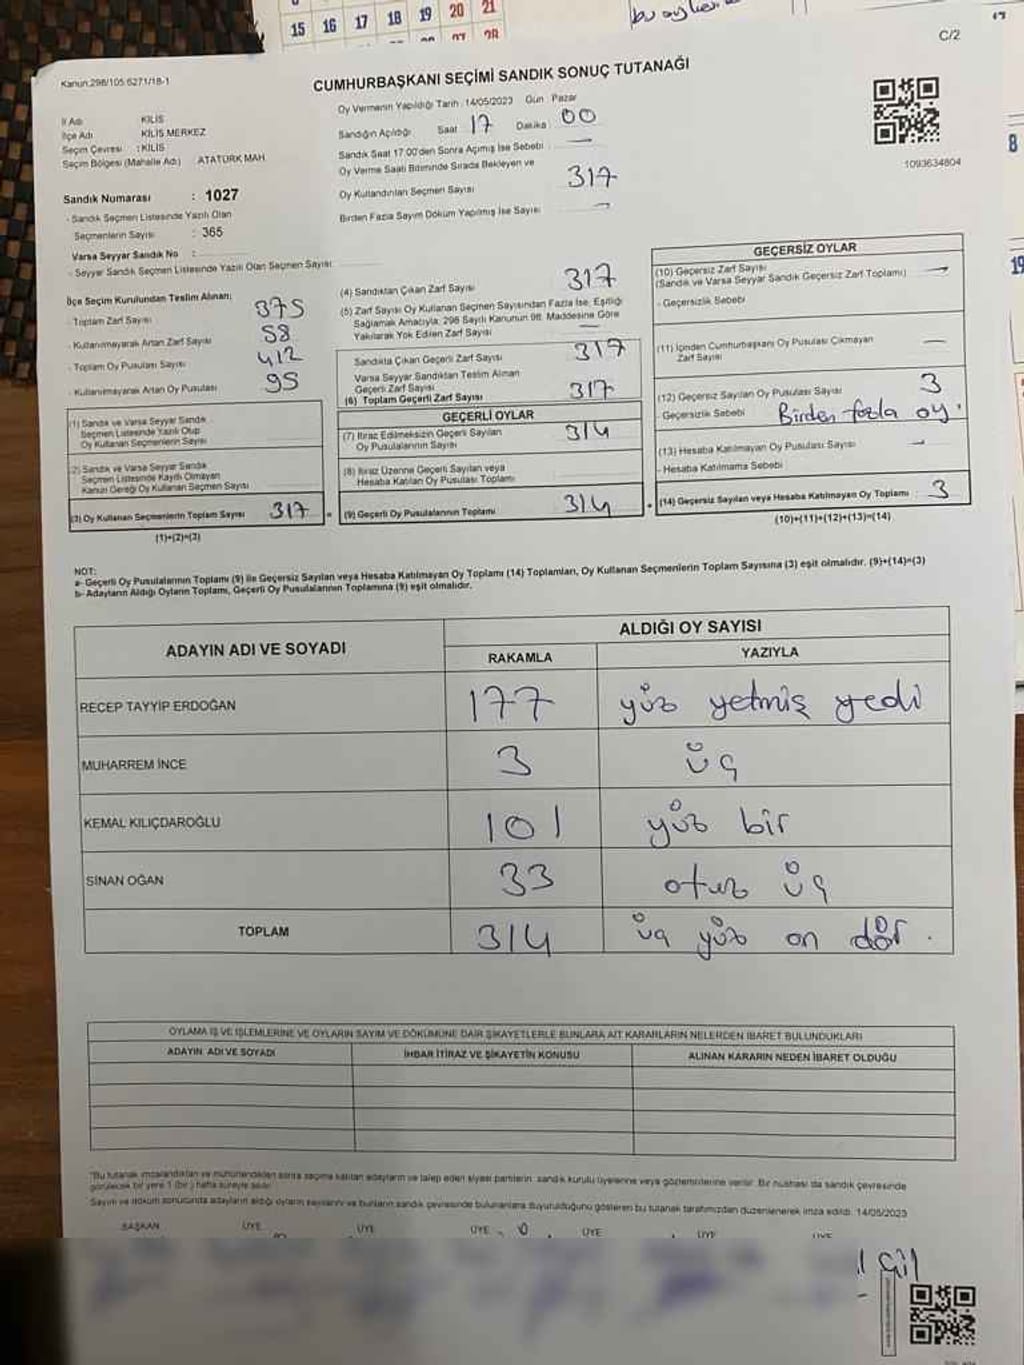 15 16 17 18 19 20 21
C/2
Kanun:298/105.6271/18-1
CUMHURBAŞKANI SEÇİMİ SANDIK SONUÇ TUTANAĞI
İl Adı KİLİS
İlçe Adı KİLİS MERKEZ
Seçim Çevresi : KİLİS
Seçim Bölgesi (Mahalle Adı) ATATÜRK MAH.
Oy Vermenin Yapıldığı Tarih : 14/05/2023 Gün Pazar
Sandığın Açıldığı Saat 17 Dakika 00
Sandık Saat 17:00'den Sonra Açımış İse Sebebi : —
Oy Verme Saati Bitiminde Sırada Bekleyen ve
Oy Kullandırılan Seçmen Sayısı 317
Birden Fazla Sayım Döküm Yapılmış İse Sayısı —
1093634804
Sandık Numarası : 1027
- Sandık Seçmen Listesinde Yazılı Olan
Seçmenlerin Sayısı : 365
Varsa Seyyar Sandık No :
- Seyyar Sandık Seçmen Listesinde Yazılı Olan Seçmen Sayısı
İlçe Seçim Kurulundan Teslim Alınan:
- Toplam Zarf Sayısı 375
- Kullanılmayarak Artan Zarf Sayısı 58
- Toplam Oy Pusulası Sayısı 412
- Kullanılmayarak Artan Oy Pusulası 95
(1) Sandık ve Varsa Seyyar Sandık
Seçmen Listesinde Yazılı Olup
Oy Kullanan Seçmenlerin Sayısı
(2) Sandık ve Varsa Seyyar Sandık
Seçmen Listesinde Kayıtlı Olmayan
Kanun Gereği Oy Kullanan Seçmen Sayısı
(3) Oy Kullanan Seçmenlerin Toplam Sayısı 317
(1)+(2)=(3)
(4) Sandıktan Çıkan Zarf Sayısı 317
(5) Zarf Sayısı Oy Kullanan Seçmen Sayısından Fazla İse, Eşitliği
Sağlamak Amacıyla, 298 Sayılı Kanunun 98. Maddesine Göre
Yakılarak Yok Edilen Zarf Sayısı —
Sandıkta Çıkan Geçerli Zarf Sayısı 317
Varsa Seyyar Sandıktan Teslim Alınan
Geçerli Zarf Sayısı
(6) Toplam Geçerli Zarf Sayısı 317
GEÇERLİ OYLAR
(7) İtiraz Edilmeksizin Geçerli Sayılan
Oy Pusulalarının Sayısı 314
(8) İtiraz Üzerine Geçerli Sayılan veya
Hesaba Katılan Oy Pusulası Toplamı
(9) Geçerli Oy Pusulalarının Toplamı 314
GEÇERSİZ OYLAR
(10) Geçersiz Zarf Sayısı
(Sandık ve Varsa Seyyar Sandık Geçersiz Zarf Toplamı) —
- Geçersizlik Sebebi
(11) İçinden Cumhurbaşkanı Oy Pusulası Çıkmayan
Zarf Sayısı —
(12) Geçersiz Sayılan Oy Pusulası Sayısı 3
- Geçersizlik Sebebi Birden fazla oy
(13) Hesaba Katılmayan Oy Pusulası Sayısı —
- Hesaba Katılmama Sebebi
(14) Geçersiz Sayılan veya Hesaba Katılmayan Oy Toplamı : 3
(10)+(11)+(12)+(13)=(14)
NOT:
a- Geçerli Oy Pusulalarının Toplamı (9) ile Geçersiz Sayılan veya Hesaba Katılmayan Oy Toplamı (14) Toplamları, Oy Kullanan Seçmenlerin Toplam Sayısına (3) eşit olmalıdır. (9)+(14)=(3)
b- Adayların Aldığı Oyların Toplamı, Geçerli Oy Pusulalarının Toplamına (9) eşit olmalıdır.
ADAYIN ADI VE SOYADI ALDIĞI OY SAYISI
RAKAMLA YAZIYLA
RECEP TAYYİP ERDOĞAN 177 yüz yetmiş yedi
MUHARREM İNCE 3 üç
KEMAL KILIÇDAROĞLU 101 yüz bir
SİNAN OĞAN 33 otuz üç
TOPLAM 314 üç yüz on dör.
OYLAMA İŞ VE İŞLEMLERİNE VE OYLARIN SAYIM VE DÖKÜMÜNE DAİR ŞİKAYETLERLE BUNLARA AİT KARARLARIN NELERDEN İBARET BULUNDUKLARI
ADAYIN ADI VE SOYADI İHBAR İTİRAZ VE ŞİKAYETİN KONUSU ALINAN KARARIN NEDEN İBARET OLDUĞU
*Bu tutanak imzalandıktan ve mühürlendikten sonra seçime katılan adayların ve talep eden siyasi partilerin sandık kurulu üyelerine veya gözlemcilerine verilir. Bir nüshası da sandık çevresinde
görülecek bir yere 1 (bir) hafta süreyle asılır.
Sayım ve döküm sonucunda adayların aldığı oyların sayılarını ve bunların sandık çevresinde bulunanlara duyurulduğunu gösteren bu tutanak tarafımızdan düzenlenerek imza edildi. 14/05/2023
BAŞKAN ÜYE ÜYE ÜYE ÜYE ÜYE ÜYE